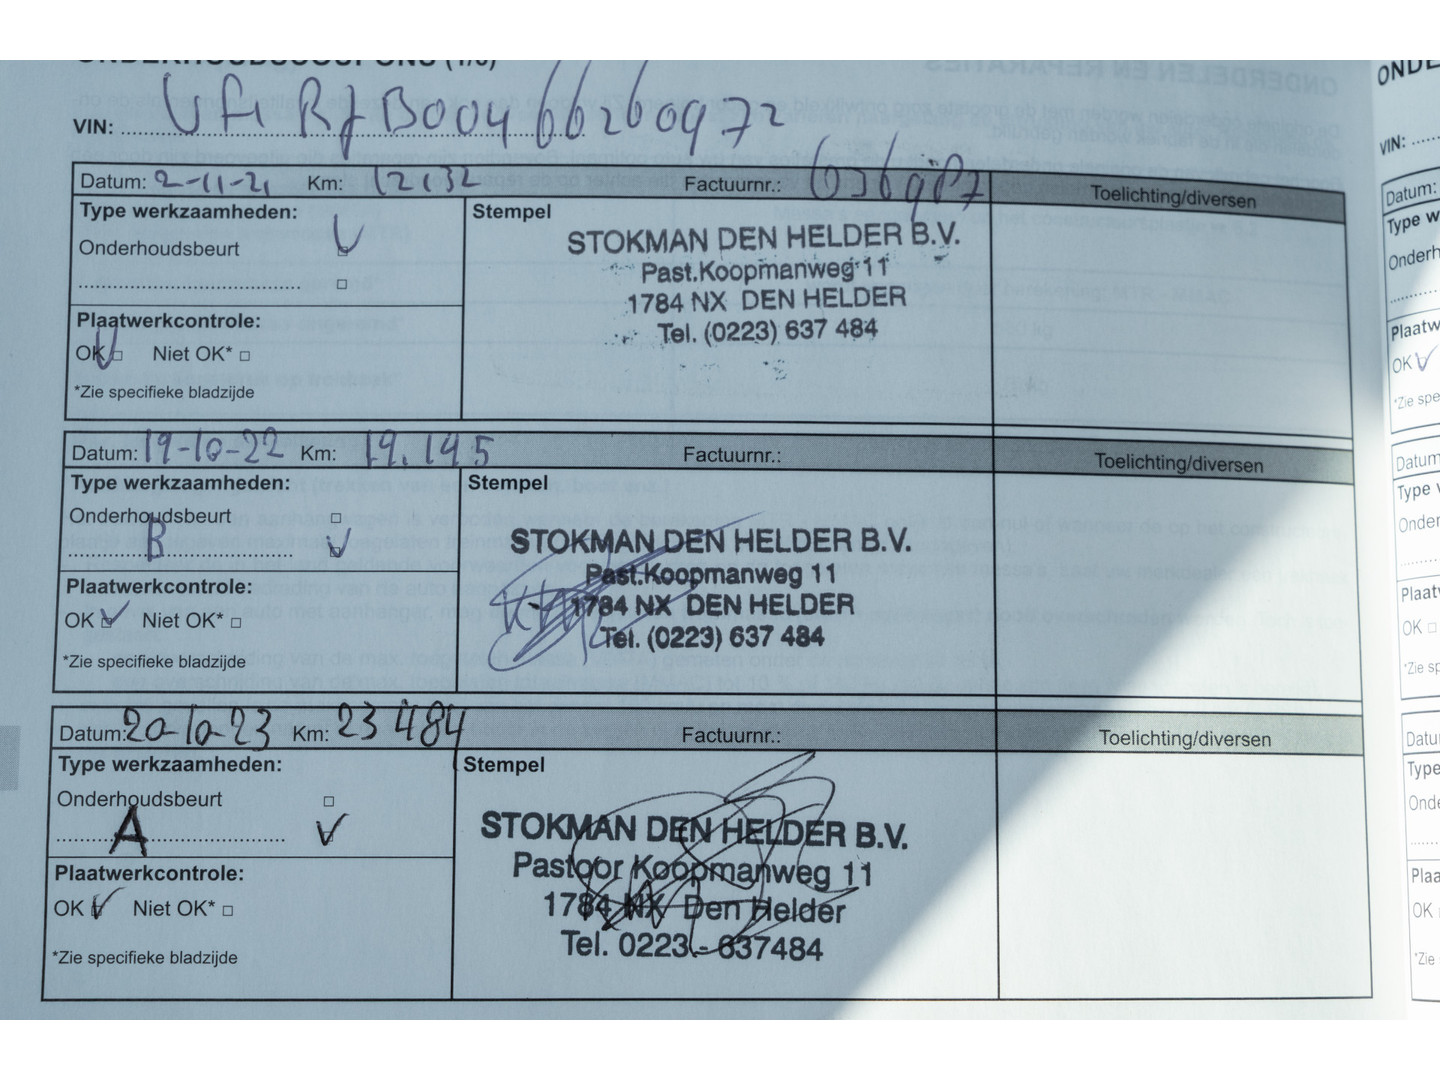 VIN: VF1RJB00466260972
Datum: 2-11-21 Km: 12132 Factuurnr.: 636987 Toelichting/diversen
Type werkzaamheden: Stempel
Onderhoudsbeurt
STOKMAN DEN HELDER B.V.
Past.Koopmanweg 11
1784 NX DEN HELDER
Tel. (0223) 637 484
Plaatwerkcontrole:
OK Niet OK*
*Zie specifieke bladzijde
Datum: 19-10-22 Km: 19.145 Factuurnr.: Toelichting/diversen
Type werkzaamheden: Stempel
Onderhoudsbeurt
B
STOKMAN DEN HELDER B.V.
Past.Koopmanweg 11
1784 NX DEN HELDER
Tel. (0223) 637 484
Plaatwerkcontrole:
OK Niet OK*
*Zie specifieke bladzijde
Datum: 20-10-23 Km: 23484 Factuurnr.: Toelichting/diversen
Type werkzaamheden: Stempel
Onderhoudsbeurt
A
STOKMAN DEN HELDER B.V.
Pastoor Koopmanweg 11
1784 NX Den Helder
Tel. 0223 - 637484
Plaatwerkcontrole:
OK Niet OK*
*Zie specifieke bladzijde
VIN:
Datum:
OK
Datum
OK
OK